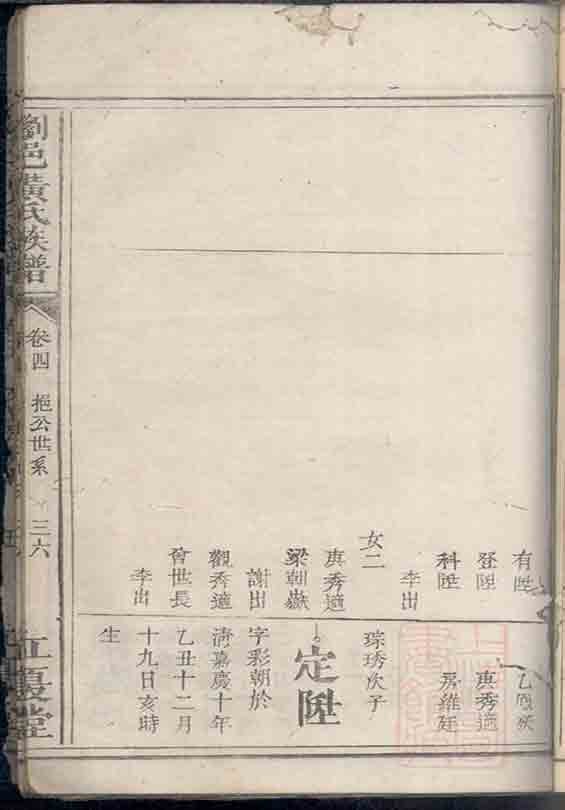 有陞
登陞
科陞
李出
女二
庚秀適
梁朝嶽
謝出
觀秀適
曾世長
李出
庚秀適
琮琇次子
定陞
字彩朝於
淸嘉慶十年
乙丑十二月
十九日亥時
生
瀏邑黃氏族譜
卷四
挹公世系
三六
江夏堂